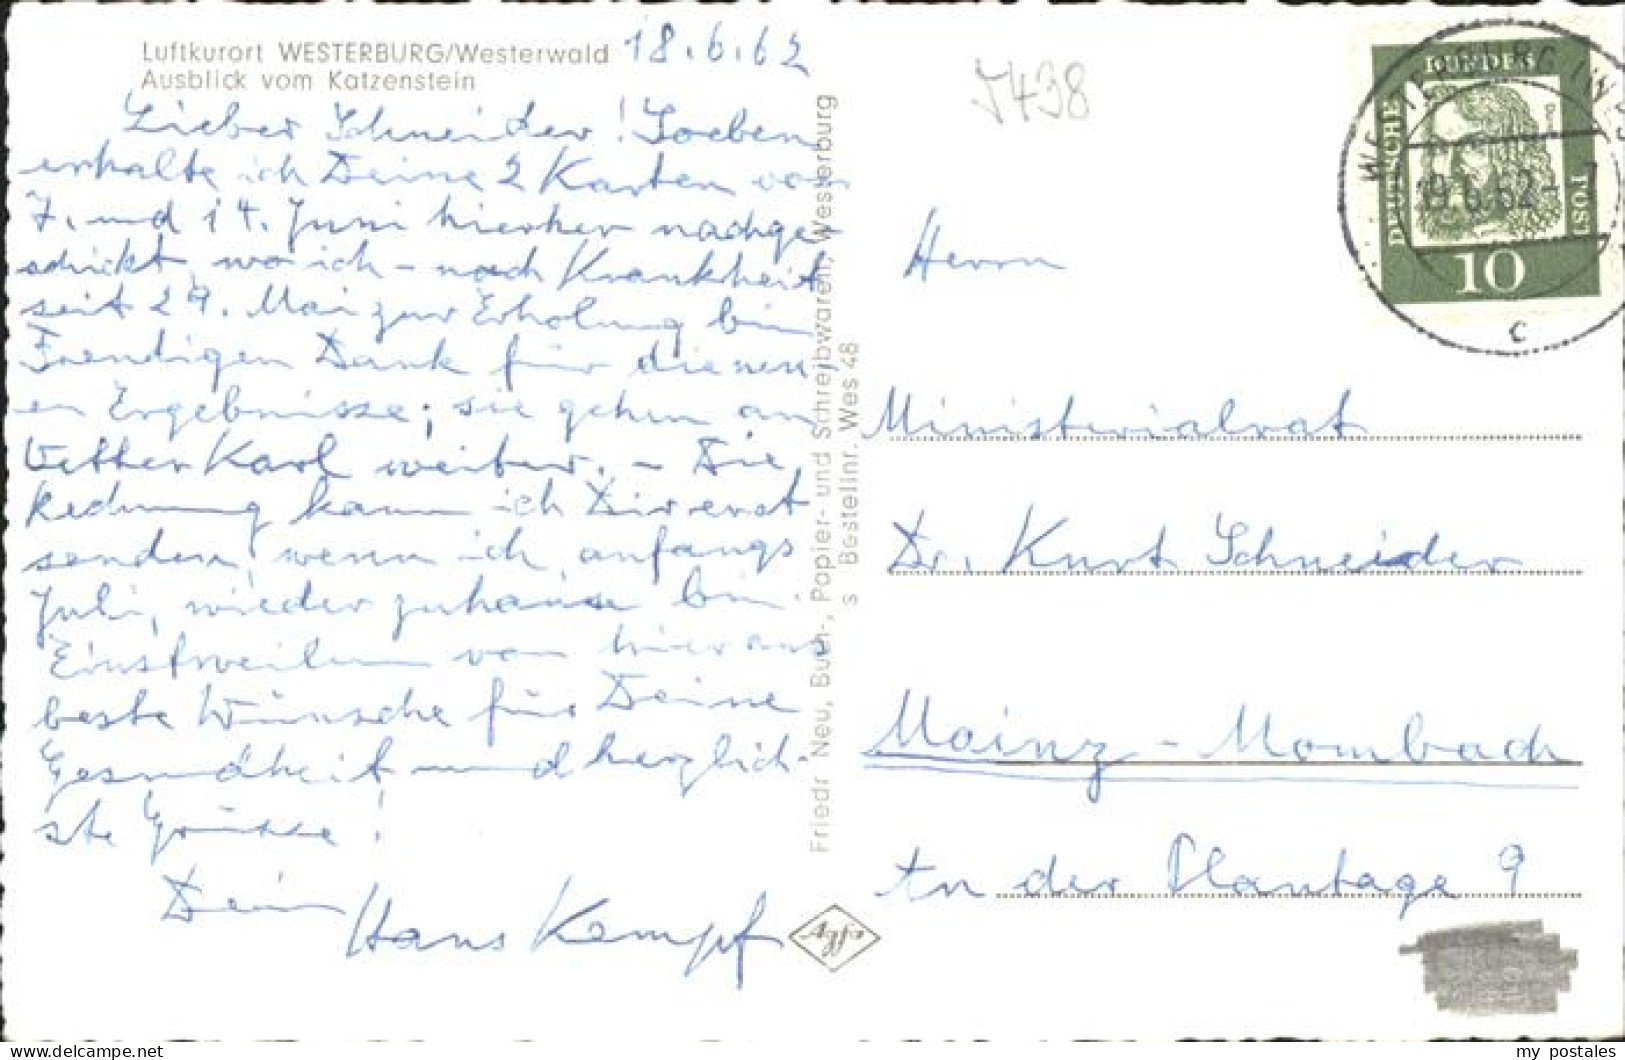 Luftkurort WESTERBURG/Westerwald
Ausblick vom Katzenstein
18.6.62
Lieber Schneider! Soeben
erhalte ich Deine 2 Karten vom
7. und 14. Juni hierher nachge-
schickt, wo ich – nach Krankheit
seit 29. Mai zur Erholung bin
Freudigen Dank für die neu-
en Ergebnisse; sie gehen an
Vetter Karl weiter. – Die
Rechnung kann ich Dir erst
senden, wenn ich anfangs
Juli, wieder zuhause bin.
Einstweilen von hier aus
beste Wünsche für Deine
Gesundheit und herzlich-
ste Grüsse!
Dein Hans Kempf
Friedr. Neu, Buch-, Papier- und Schreibwaren, Westerburg
s Bestellnr. Wes 48
Agfa
J438
DEUTSCHE
BUNDES
POST
10
WESTERBURG (WW)
19.6.62-7
c
Herrn
Ministerialrat
Dr. Kurt Schneider
Mainz-Mombach
An der Plantage 9
my postales
delcampe.net